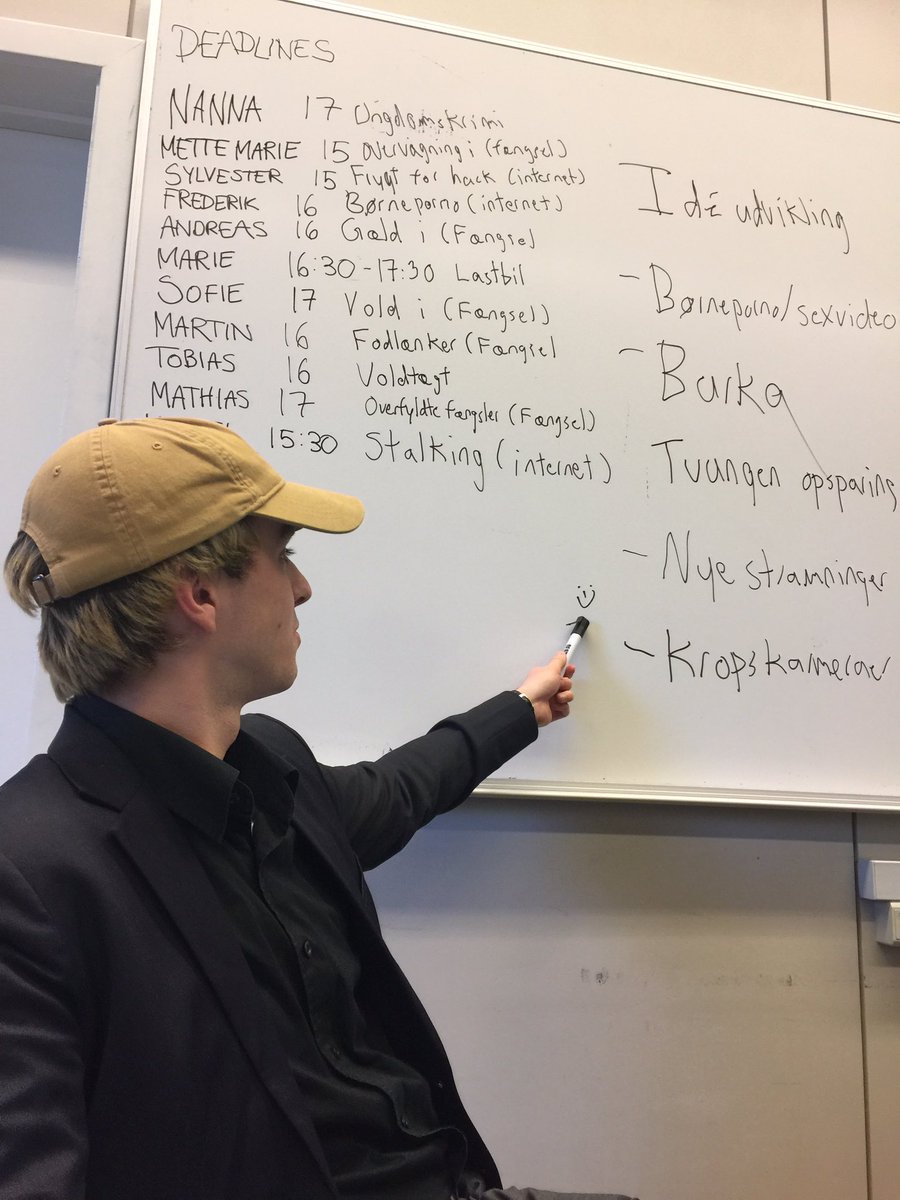 DEADLINES
NANNA 17 Ungdomskrimi
METTE MARIE 15 overvågning i (fængsel)
SYLVESTER 15 Frygt for hack (internet)
FREDERIK 16 Børneporno (internet)
ANDREAS 16 Gæld i (Fængsel
MARIE 16:30-17:30 Lastbil
SOFIE 17 Vold i (Fængsel)
MARTIN 16 Fodlænker (Fængsel
TOBIAS 16 Voldtægt
MATHIAS 17 Overfyldte fængsler (Fængsel)
15:30 Stalking (internet)
Idé udvikling
- Børneporno/sexvideo
- Burka
Tvungen opsparing
- Nye stramninger
- Kropskameraer